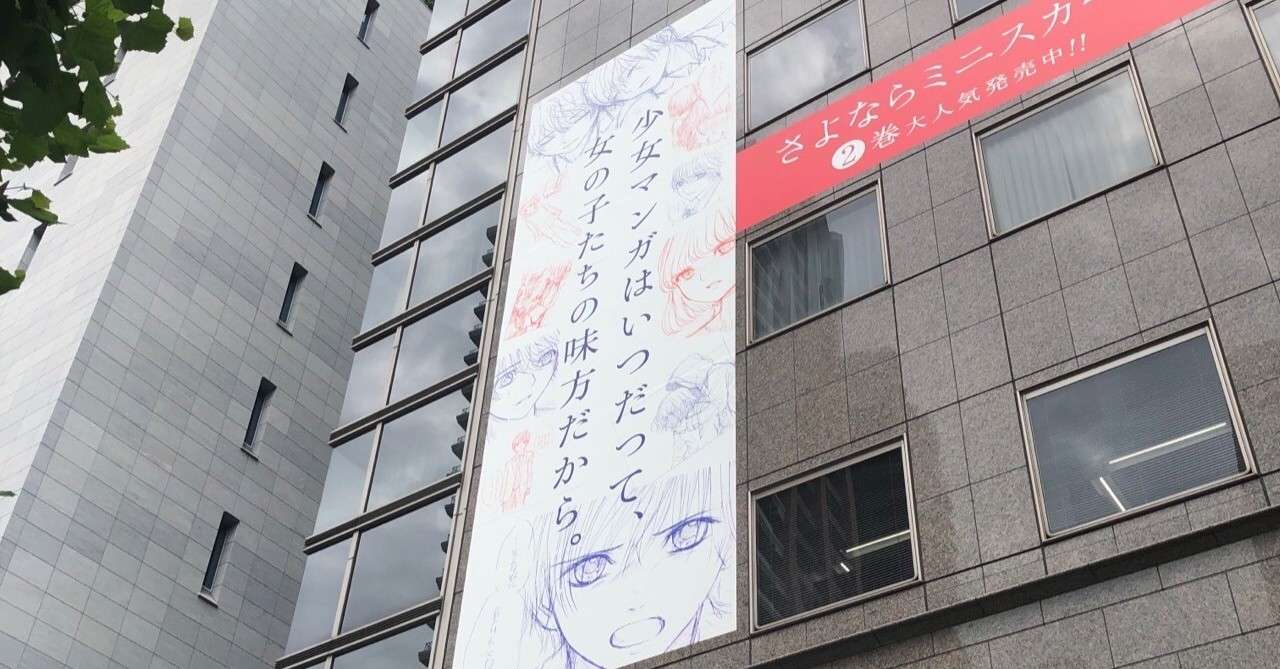 少女マンガはいつだって、
女の子たちの味方だから。
さよならミニスカ
2巻大人気発売中!!